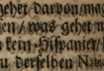 gehet darvon / mag
en / was gehet n
o kein Hispanier / 
u derselben Na